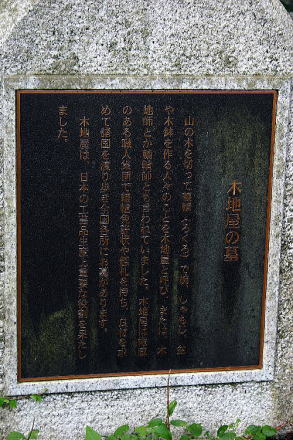 木地屋の墓
山の木を切って轆轤(ろくろ)で椀、しゃもじ、盆
や木鉢を作る人々のことを木地屋と呼び、または木
地師とか轆轤師とも言われていました。木地屋は
のある職人集団で
めて諸国を渡り歩き全国各所にお墓があります。
木地屋は、日本の工芸品生産に重要な役割を果たし
ました。